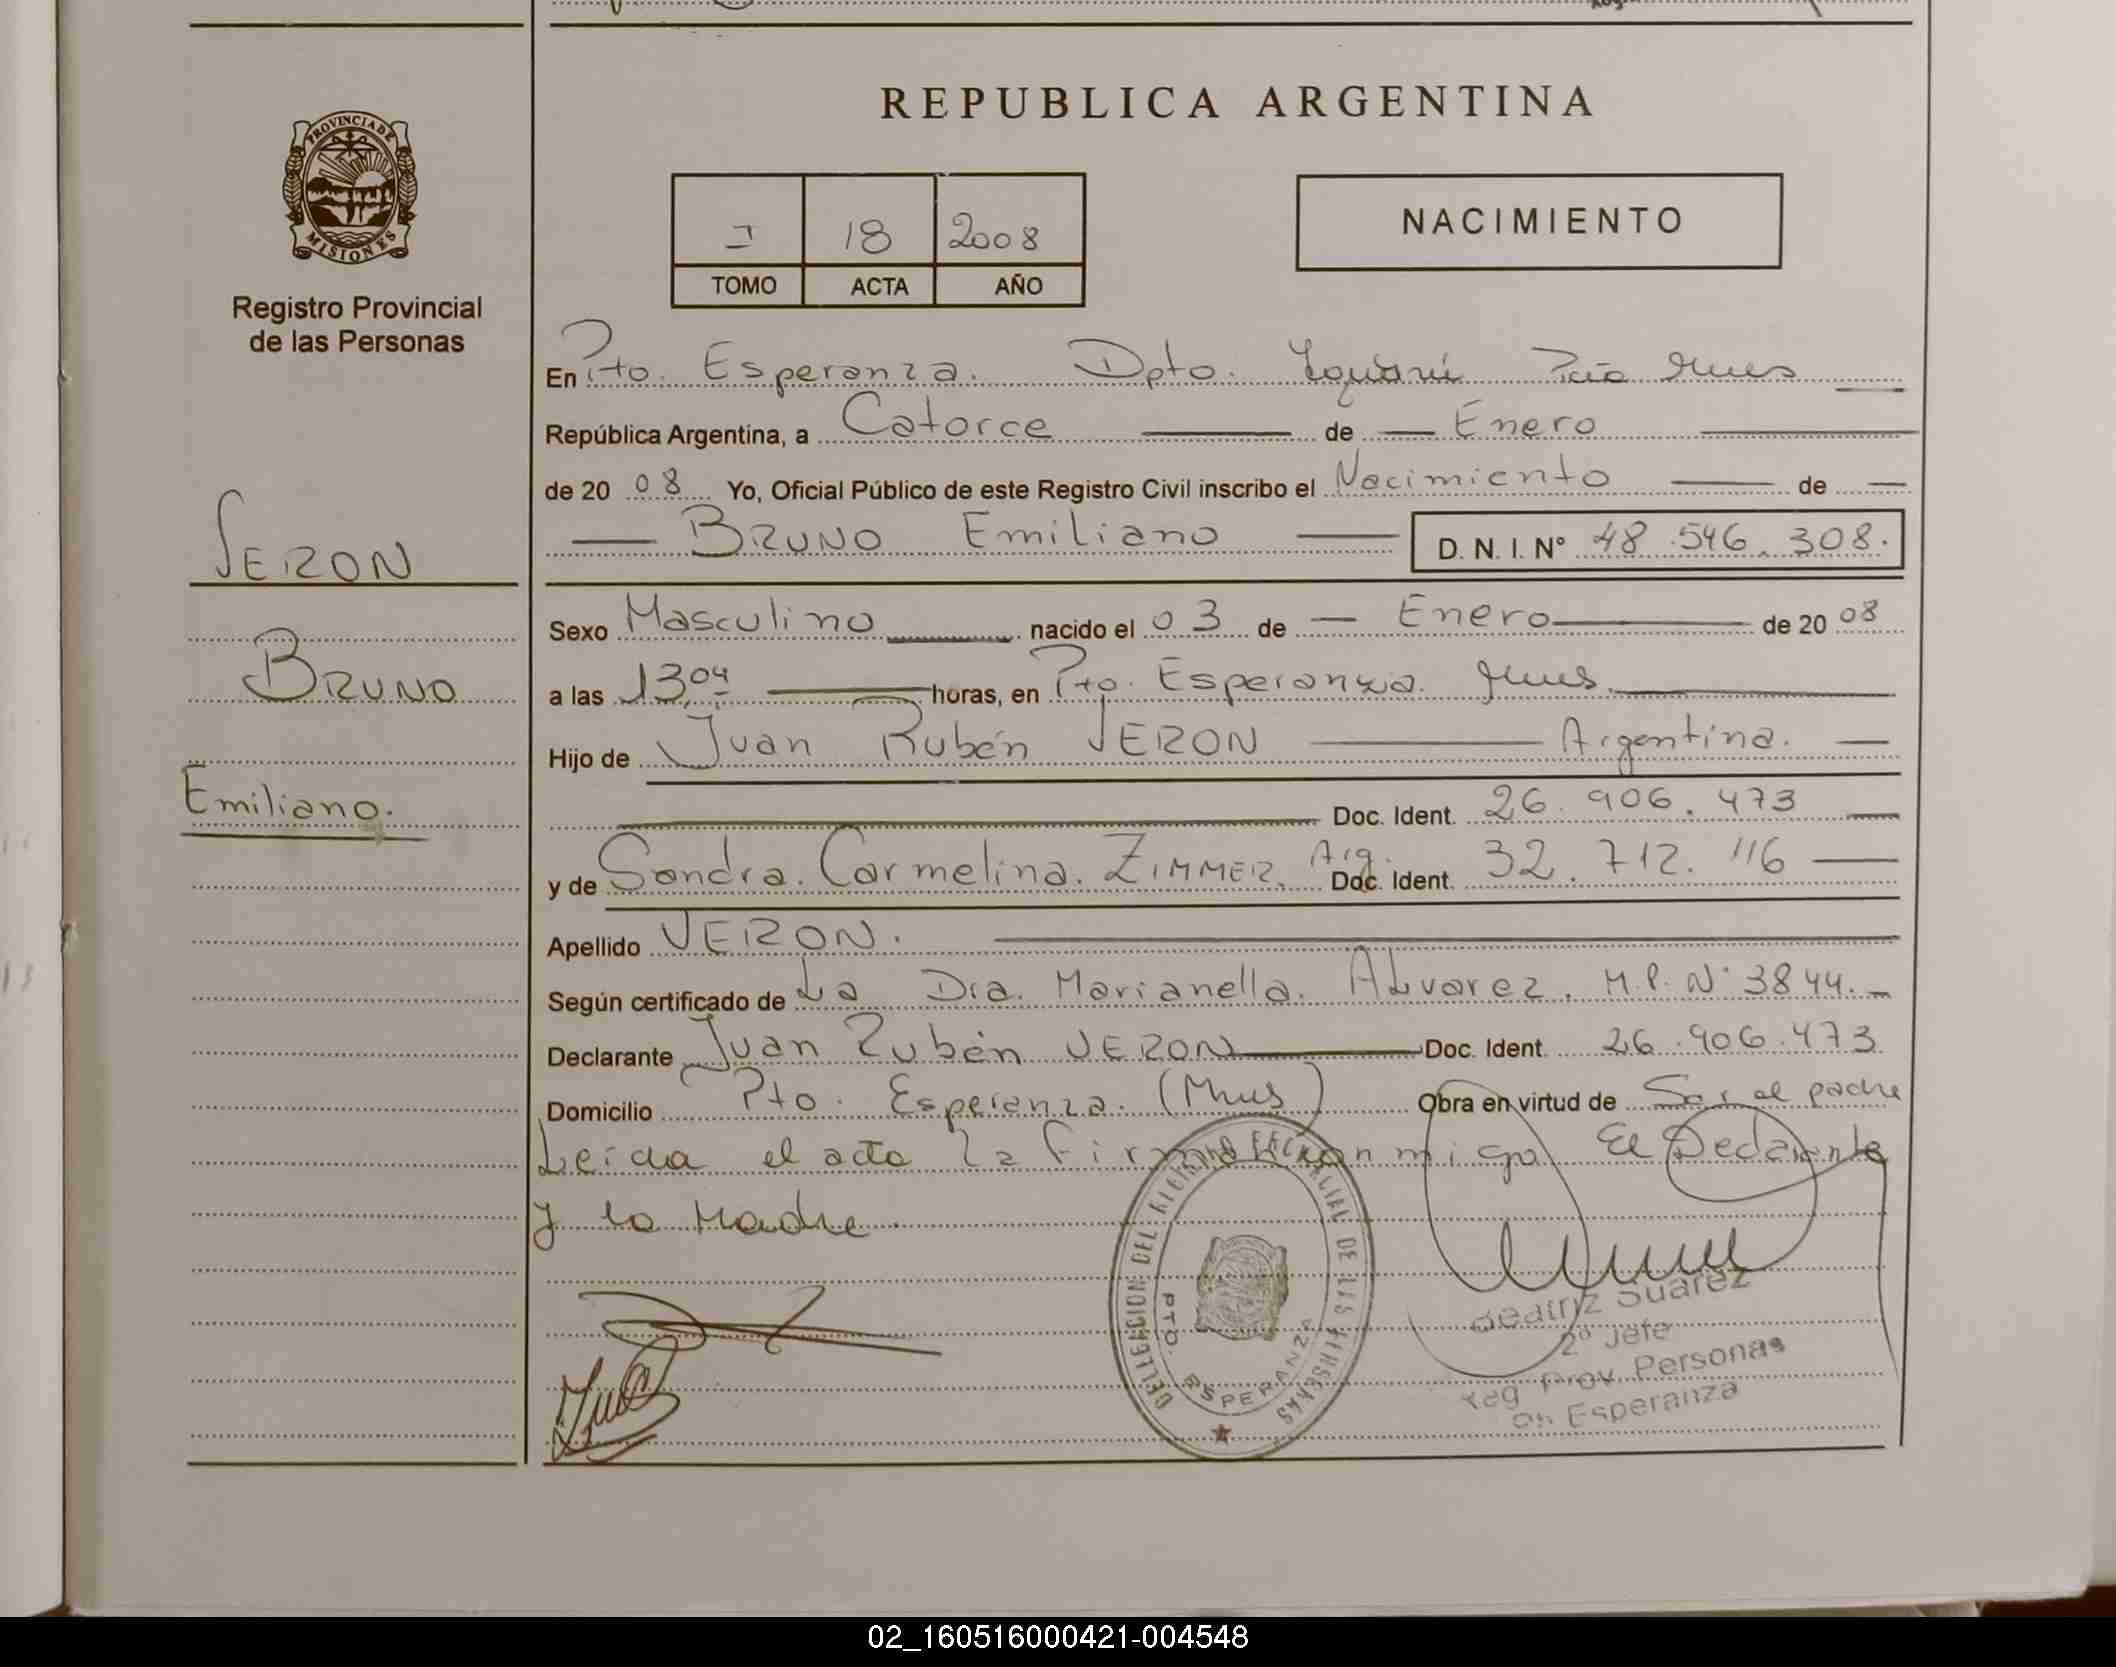 REPUBLICA ARGENTINA
PROVINCIA DE MISIONES
Registro Provincial
de las Personas
I 18 2008
TOMO ACTA AÑO
NACIMIENTO
VERON
BRUNO
Emiliano.
En Pto. Esperanza. Dpto. Iguazú Pcia Mnes
República Argentina, a Catorce de Enero
de 20 08 Yo, Oficial Público de este Registro Civil inscribo el Nacimiento de
BRUNO Emiliano D. N. I. Nº 48.546.308.
Sexo Masculino nacido el 03 de Enero de 20 08
a las 13,04 horas, en Pto. Esperanza. Mnes.
Hijo de Juan Rubén VERON Argentina.
Doc. Ident. 26.906.473
y de Sandra. Carmelina. ZIMMER. Arg. Doc. Ident. 32.712.116
Apellido VERON.
Según certificado de La Dra. Marianella. ALvarez. M.P. Nº 3844.
Declarante Juan Rubén VERON Doc. Ident. 26.906.473
Domicilio Pto. Esperanza. (Mnes) Obra en virtud de Ser el padre
Leida el acta la Firman conmigo El Declarante
y la Madre.
DELEGACION DEL REGISTRO PROVINCIAL DE LAS PERSONAS
PTO. ESPERANZA
Beatriz Suarez
2º Jefe
Reg Prov. Personas
Esperanza
02_160516000421-004548